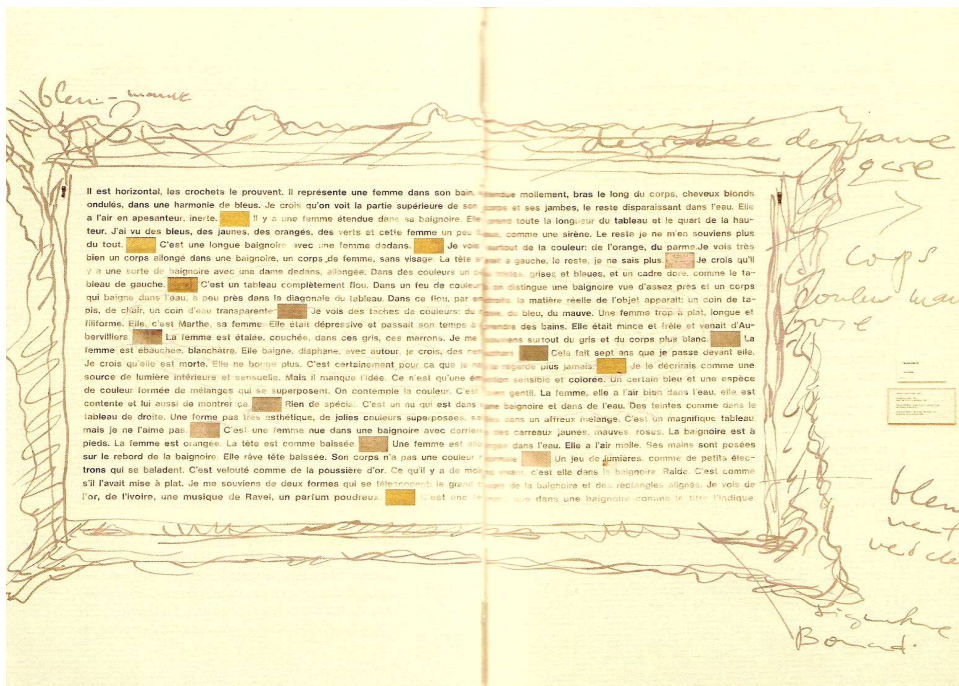 bleu - mauve
dégradée de jaune
ocre
Il est horizontal, les crochets le prouvent. Il représente une femme dans son bain, étendue mollement, bras le long du corps, cheveux blonds
ondulés, dans une harmonie de bleus. Je crois qu'on voit la partie supérieure de son corps et ses jambes, le reste disparaissant dans l'eau. Elle
a l'air en apesanteur, inerte. Il y a une femme étendue dans sa baignoire. Elle prend toute la longueur du tableau et le quart de la hau-
teur. J'ai vu des bleus, des jaunes, des orangés, des verts et cette femme un peu comme une sirène. Le reste je ne m'en souviens plus
du tout. C'est une longue baignoire avec une femme dedans. Je vois surtout de la couleur: de l'orange, du parme. Je vois très
bien un corps allongé dans une baignoire, un corps de femme, sans visage. La tête à gauche, le reste, je ne sais plus. Je crois qu'il
y a une sorte de baignoire avec une dame dedans, allongée. Dans des couleurs un grises et bleues, et un cadre doré, comme le ta-
bleau de gauche. C'est un tableau complètement flou. Dans un feu de couleur on distingue une baignoire vue d'assez près et un corps
qui baigne dans l'eau, à peu près dans la diagonale du tableau. Dans ce flou, par endroits, la matière réelle de l'objet apparaît: un coin de ta-
pis, de chair, un coin d'eau transparente. Je vois des taches de couleurs: du du bleu, du mauve. Une femme trop à plat, longue et
filiforme. Elle, c'est Marthe, sa femme. Elle était dépressive et passait son temps à prendre des bains. Elle était mince et frêle et venait d'Au-
bervilliers. La femme est étalée, couchée, dans ces gris, ces marrons. Je me souviens surtout du gris et du corps plus blanc. La
femme est ébauchée, blanchâtre. Elle baigne, diaphane, avec autour, je crois, des Cela fait sept ans que je passe devant elle.
Je crois qu'elle est morte. Elle ne bouge plus. C'est certainement pour ça que je ne la regarde plus jamais. Je le décrirais comme une
source de lumière intérieure et sensuelle. Mais il manque l'idée. Ce n'est qu'une émotion sensible et colorée. Un certain bleu et une espèce
de couleur formée de mélanges qui se superposent. On contemple la couleur. C'est gentil. La femme, elle a l'air bien dans l'eau, elle est
contente et lui aussi de montrer ça. Rien de spécial. C'est un nu qui est dans une baignoire et dans de l'eau. Des teintes comme dans le
tableau de droite. Une forme pas très esthétique, de jolies couleurs superposées, dans un affreux mélange. C'est un magnifique tableau
mais je ne l'aime pas. C'est une femme nue dans une baignoire avec derrière des carreaux jaunes, mauves, roses. La baignoire est à
pieds. La femme est orangée. La tête est comme baissée. Une femme est dans l'eau. Elle a l'air molle. Ses mains sont posées
sur le rebord de la baignoire. Elle rêve tête baissée. Son corps n'a pas une couleur Un jeu de lumières, comme de petits élec-
trons qui se baladent. C'est velouté comme de la poussière d'or. Ce qu'il y a de moins vivant, c'est elle dans la baignoire. Raide. C'est comme
s'il l'avait mise à plat. Je me souviens de deux formes qui se télescopent: le grand de la baignoire et des rectangles alignés. Je vois de
l'or, de l'ivoire, une musique de Ravel, un parfum poudreux. C'est une femme nue dans une baignoire comme le titre l'indique.
corps
couleur mau
bleu
vert
signature
Bonnard